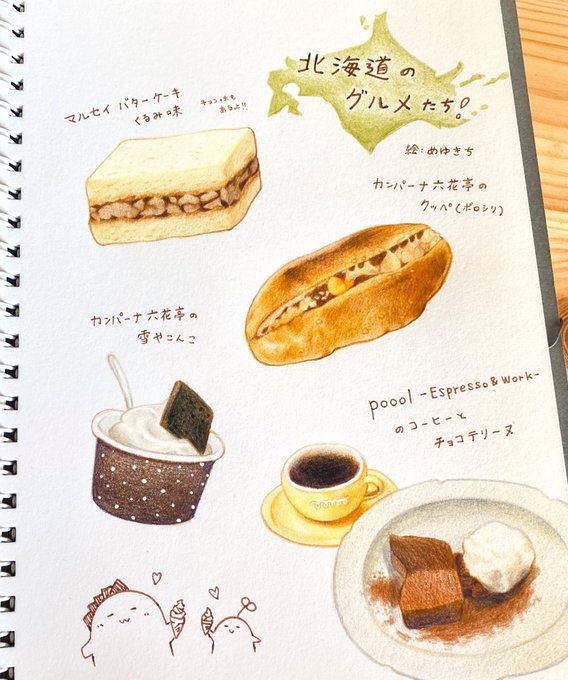 北海道の
グルメたち!
絵:めゆきち
マルセイ バターケーキ
くるみ味
チョコ味も
あるよ!!
カンパーナ六花亭の
クッペ(ポロシリ)
カンパーナ六花亭の
雪やこんこ
poool -Espresso&Work-
のコーヒーと
チョコテリーヌ